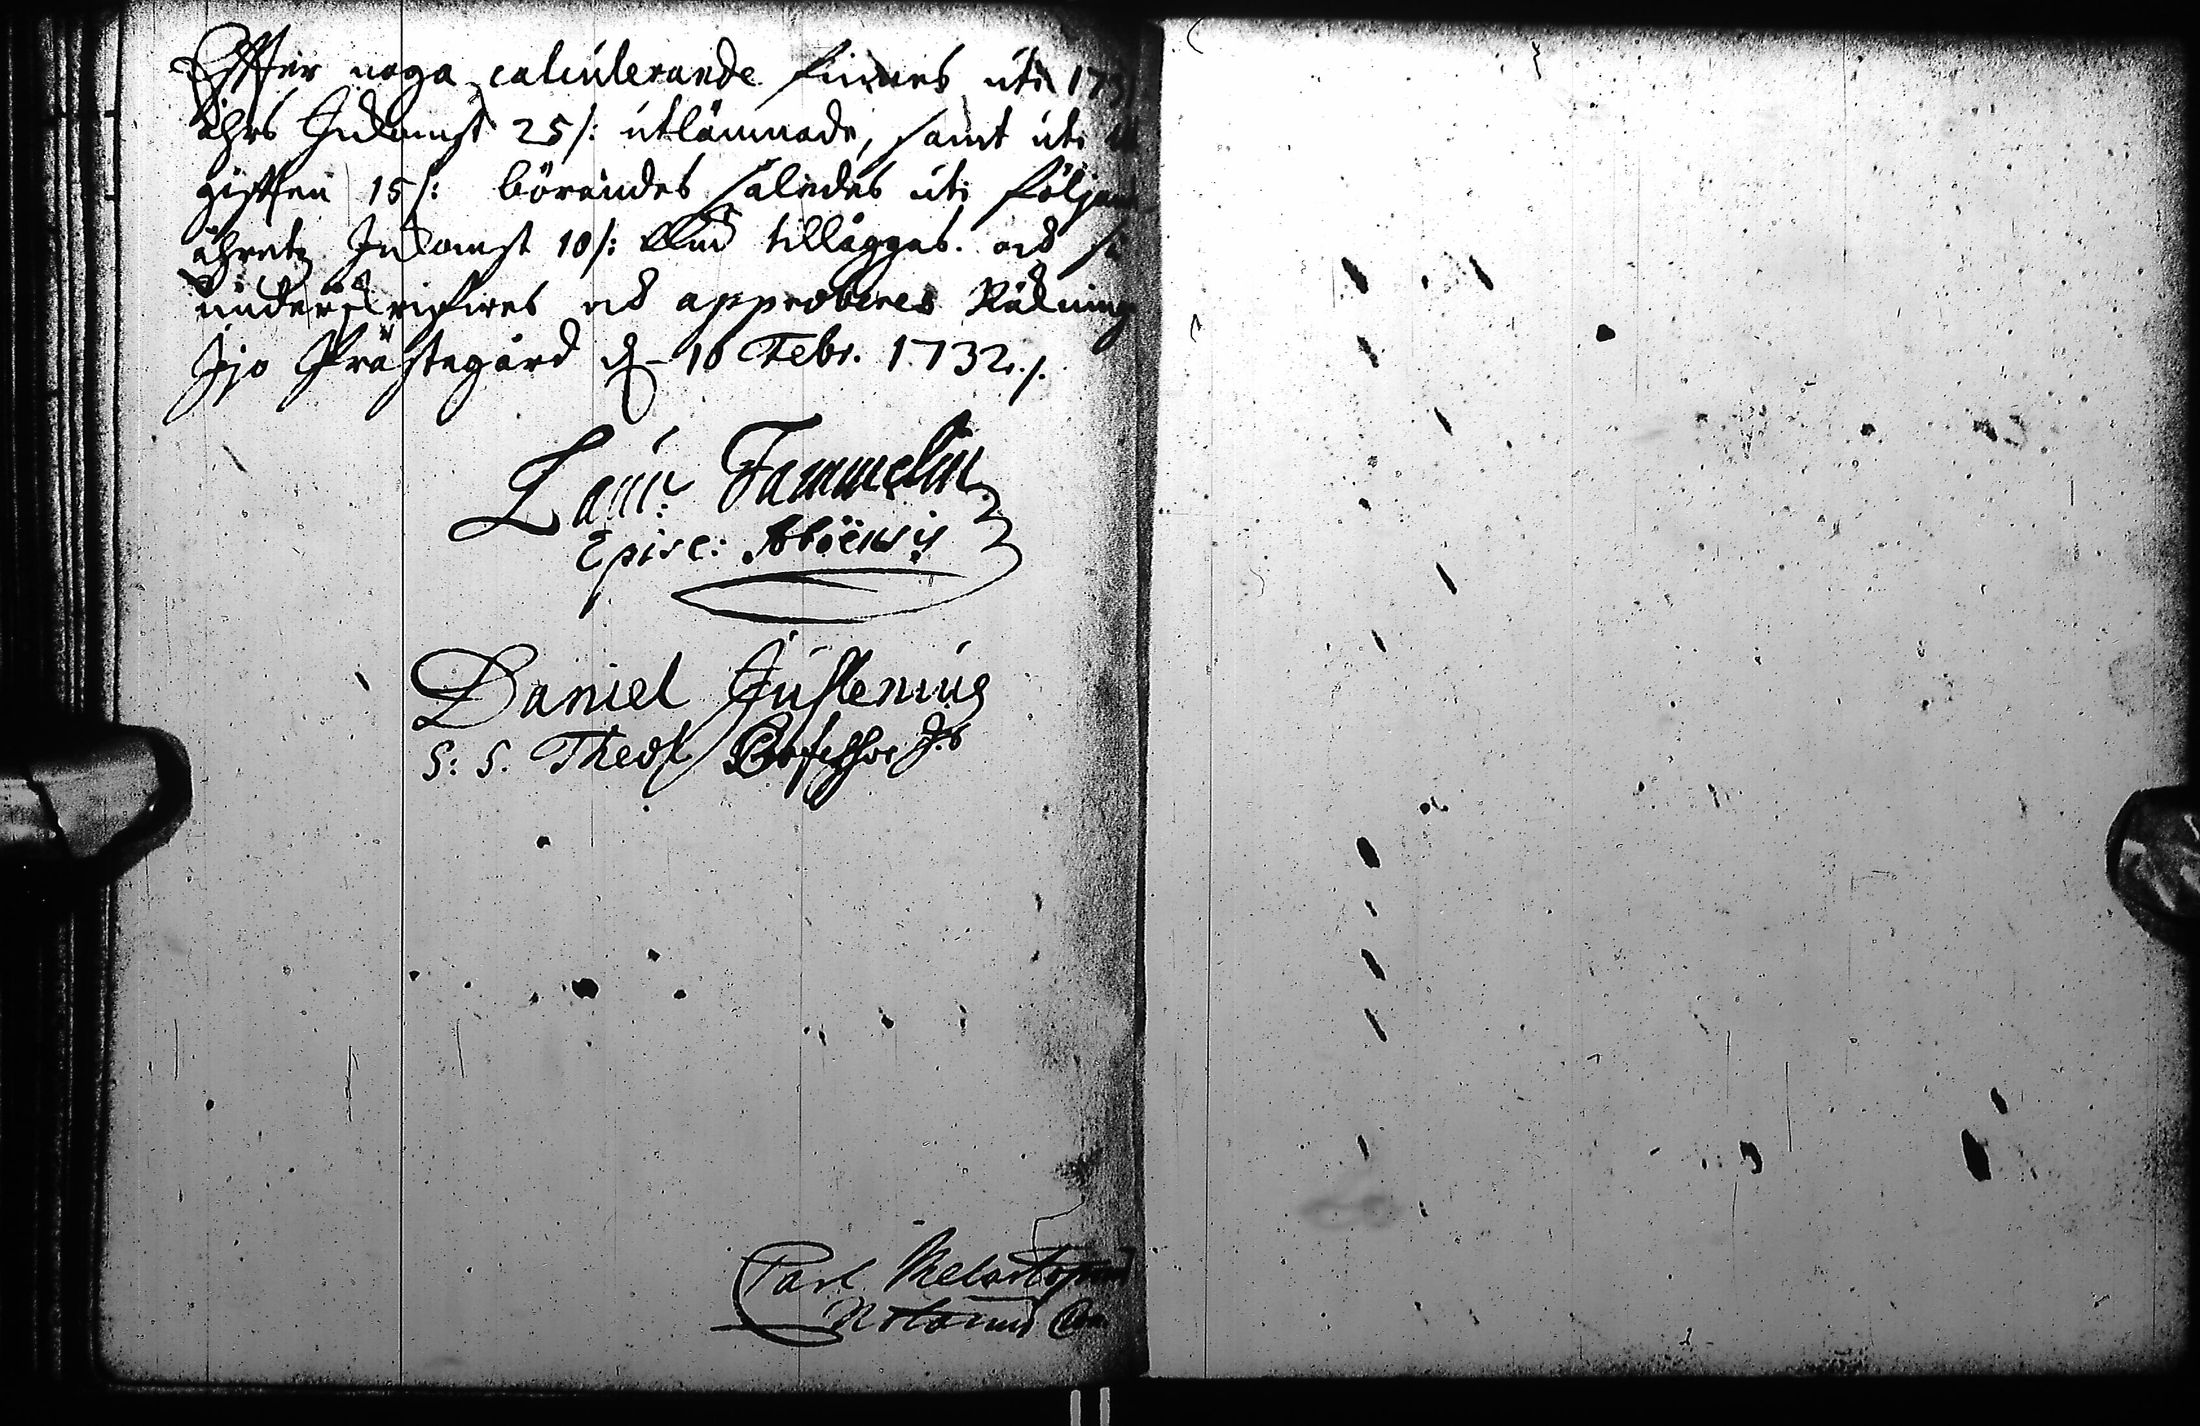 Effter noga calculerande finnes uti 173
åhrs Inkomst 25/: utlämnade, samt uti
gifften 15/: börandes således uti följan
åhretz Inkomst 10/: tilläggas. och
underskrifwes och approberes Räkning
Ijo Prästegård d 10 Febr. 1732./.
Laur: Tammelin
Episc: Aboënsis
Daniel Juslenius
S: S. Theol Professor
Carl
Notarius